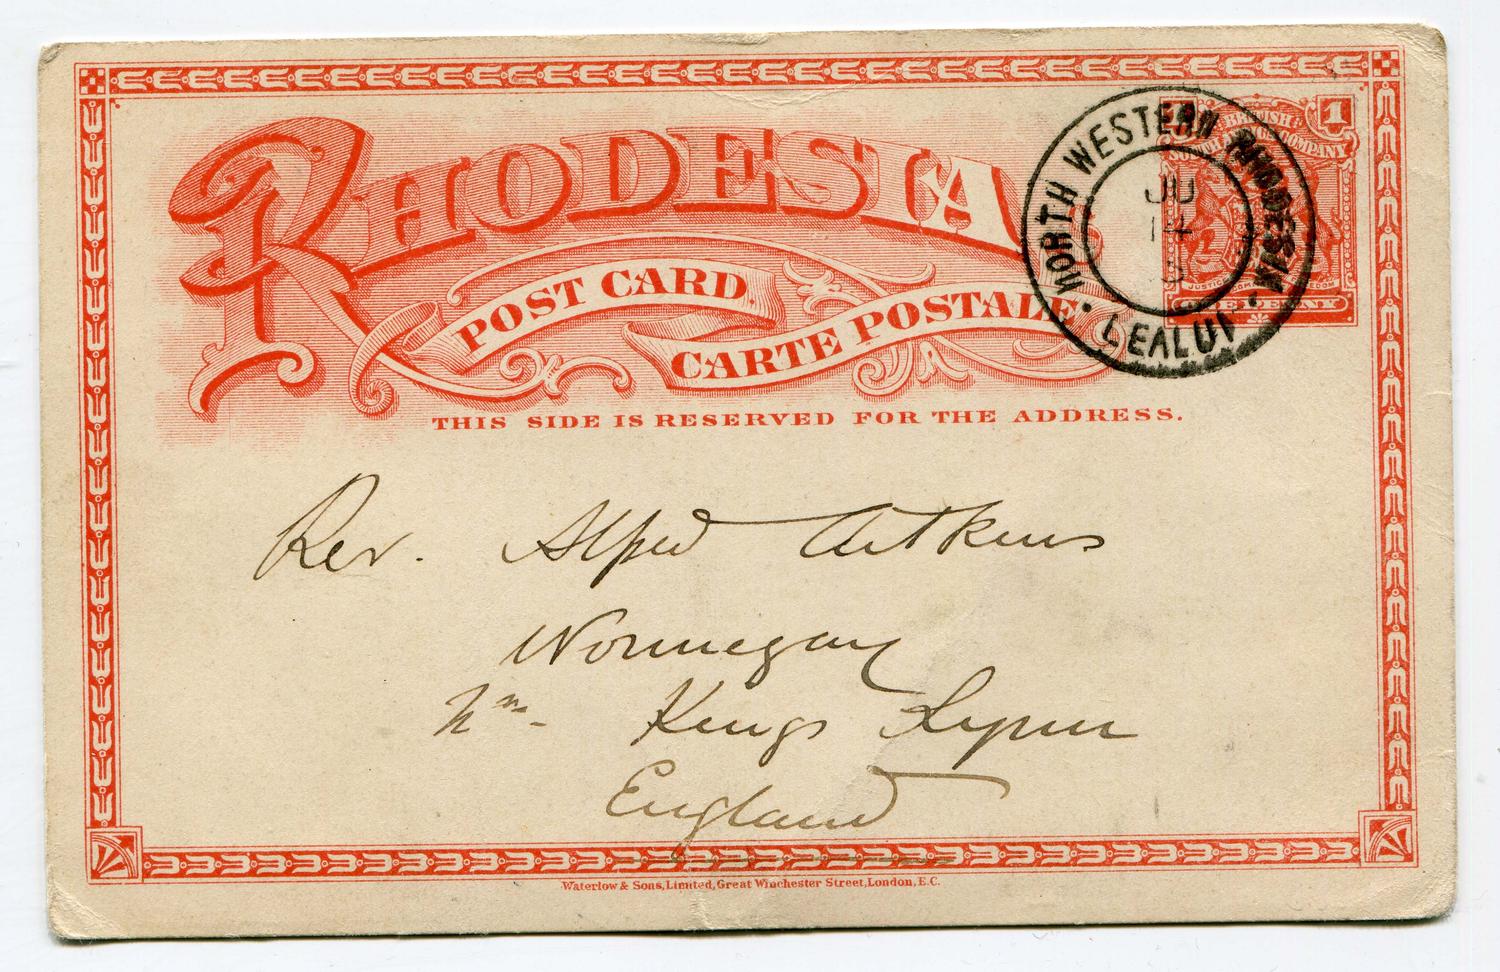 RHODESIA
POST CARD.
CARTE POSTALE
THIS SIDE IS RESERVED FOR THE ADDRESS.
1
BRITISH
SOUTH COMPANY
JUSTICE FREEDOM
ONE PENNY
NORTH WESTERN RHODESIA
JU
14
LEALUI
Rev. Alfred Aitkens
Wormegay
Nr. Kings Lynn
England
Waterlow & Sons, Limited, Great Winchester Street, London, E.C.